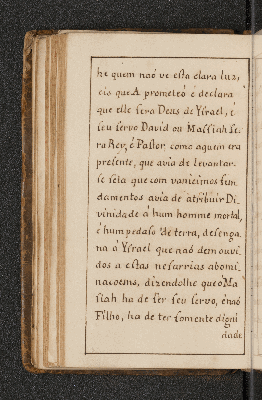 he quem naõ ve esta clara luz,
eis que A. prometeo é declara
que elle sera Deus de Ysrael, é
seu servo David ou Massiah Se
ra Rey, é Pastor, como aquem era
presente, que avia de levantar.
se seia que com vanicimos fun
damentos avia de atribuir Di
vinidade á hum homme mortal,
é hum pedaso de terra, desenga
na ó Ysrael que naõ dem ouvi
dos a estas nefarrias abomi
nacoems, dizendolhe que o Ma
siah ha de ser seu servo, é naõ
Filho, ha de ter somente digni
dade